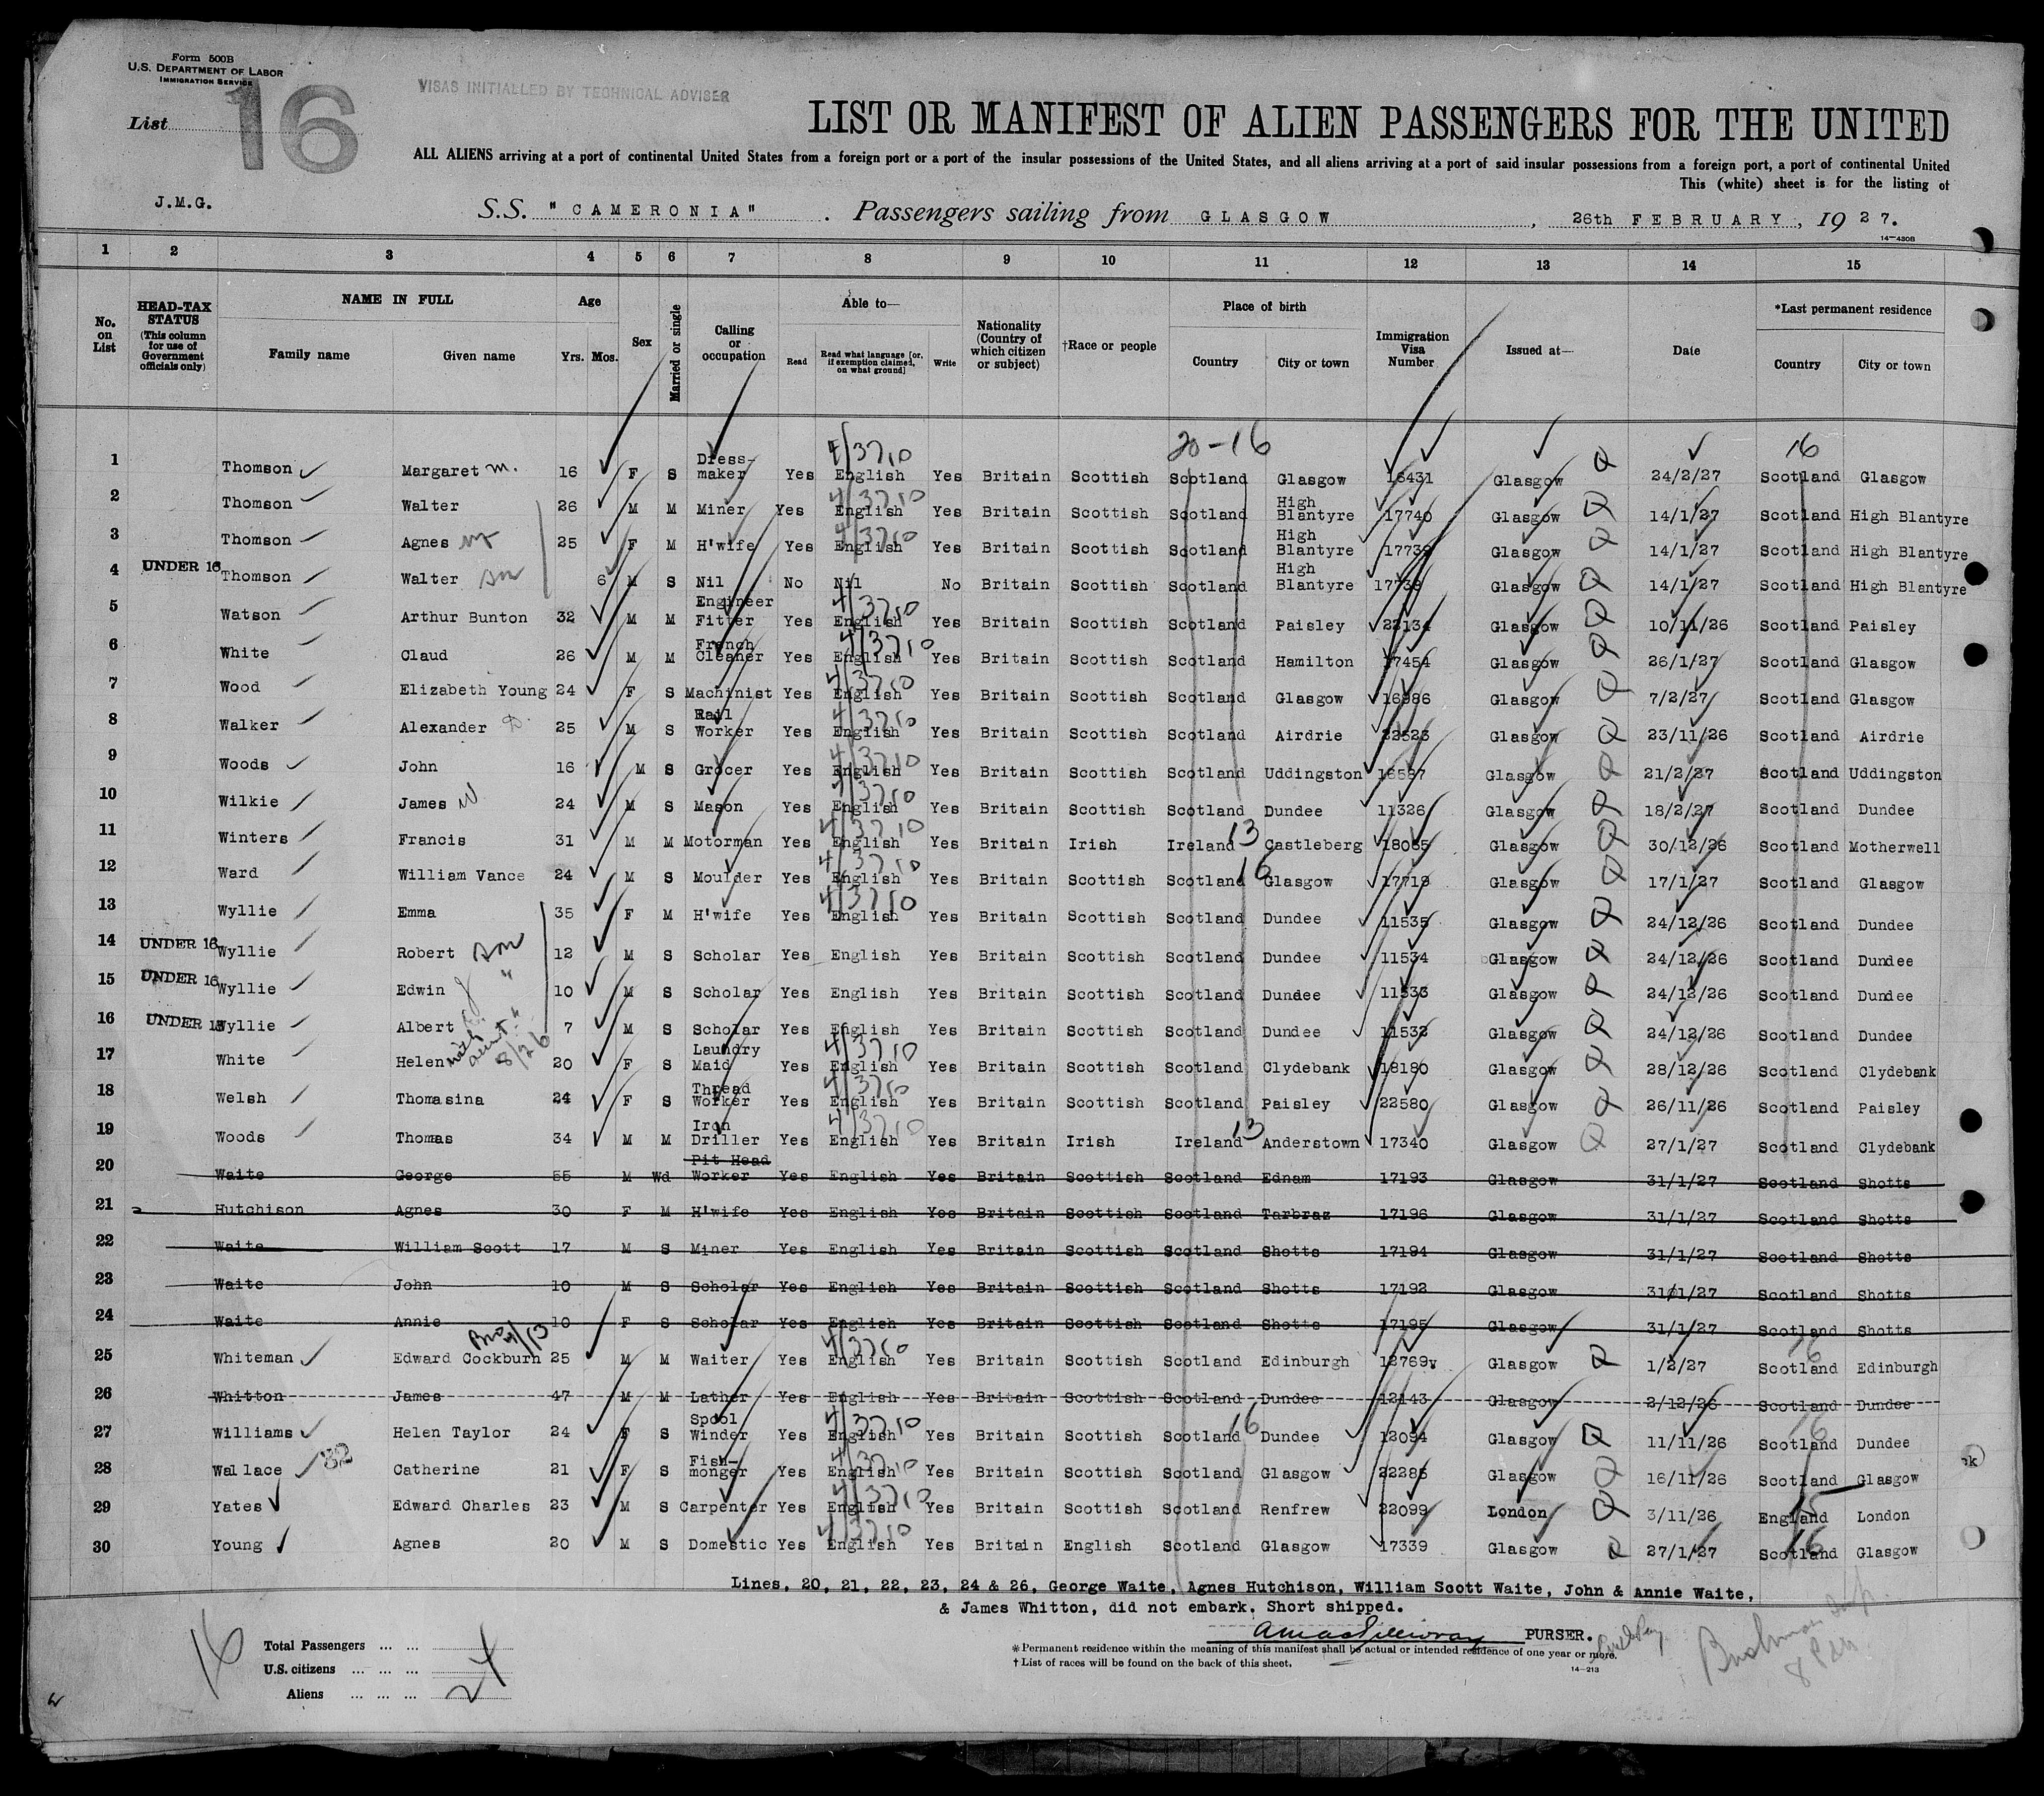 Form 500B
U.S. DEPARTMENT OF LABOR
IMMIGRATION SERVICE
VISAS INITIALLED BY TECHNICAL ADVISER
List 16
LIST OR MANIFEST OF ALIEN PASSENGERS FOR THE UNITED
ALL ALIENS arriving at a port of continental United States from a foreign port or a port of the insular possessions of the United States, and all aliens arriving at a port of said insular possessions from a foreign port, a port of continental United
This (white) sheet is for the listing of
J.M.G.
S.S. "CAMERONIA" . Passengers sailing from GLASGOW , 26th FEBRUARY , 19 27.
14—430B
1 2 3 4 5 6 7 8 9 10 11 12 13 14 15
No. on List
HEAD-TAX STATUS (This column for use of Government officials only)
NAME IN FULL
Family name Given name
Age
Yrs. Mos.
Sex
Married or single
Calling or occupation
Able to—
Read Read what language [or, if exemption claimed, on what ground] Write
Nationality (Country of which citizen or subject)
†Race or people
Place of birth
Country City or town
Immigration Visa Number
Issued at—
Date
*Last permanent residence
Country City or town
20-16 16
1 Thomson Margaret M. 16 F S Dress-maker Yes English Yes Britain Scottish Scotland Glasgow 16431 Glasgow 24/2/27 Scotland Glasgow
2 Thomson Walter 26 M M Miner Yes English Yes Britain Scottish Scotland High Blantyre 17740 Glasgow 14/1/27 Scotland High Blantyre
3 Thomson Agnes 25 F M H'wife Yes English Yes Britain Scottish Scotland High Blantyre 17739 Glasgow 14/1/27 Scotland High Blantyre
4 UNDER 16 Thomson Walter son 6 M S Nil No Nil No Britain Scottish Scotland High Blantyre 17738 Glasgow 14/1/27 Scotland High Blantyre
5 Watson Arthur Bunton 32 M M Engineer Fitter Yes English Yes Britain Scottish Scotland Paisley 22134 Glasgow 10/11/26 Scotland Paisley
6 White Claud 26 M M French Cleaner Yes English Yes Britain Scottish Scotland Hamilton 17454 Glasgow 26/1/27 Scotland Glasgow
7 Wood Elizabeth Young 24 F S Machinist Yes English Yes Britain Scottish Scotland Glasgow 16986 Glasgow 7/2/27 Scotland Glasgow
8 Walker Alexander 25 M S Rail Worker Yes English Yes Britain Scottish Scotland Airdrie 22523 Glasgow 23/11/26 Scotland Airdrie
9 Woods John 16 M S Grocer Yes English Yes Britain Scottish Scotland Uddingston 16587 Glasgow 21/2/27 Scotland Uddingston
10 Wilkie James W 24 M S Mason Yes English Yes Britain Scottish Scotland Dundee 11326 Glasgow 18/2/27 Scotland Dundee
11 Winters Francis 31 M M Motorman Yes English Yes Britain Irish Ireland 13 Castleberg 18085 Glasgow 30/12/26 Scotland Motherwell
12 Ward William Vance 24 M S Moulder Yes English Yes Britain Scottish Scotland 16 Glasgow 17719 Glasgow 17/1/27 Scotland Glasgow
13 Wyllie Emma 35 F M H'wife Yes English Yes Britain Scottish Scotland Dundee 11535 Glasgow 24/12/26 Scotland Dundee
14 UNDER 16 Wyllie Robert son 12 M S Scholar Yes English Yes Britain Scottish Scotland Dundee 11534 Glasgow 24/12/26 Scotland Dundee
15 UNDER 16 Wyllie Edwin " 10 M S Scholar Yes English Yes Britain Scottish Scotland Dundee 11533 Glasgow 24/12/26 Scotland Dundee
16 UNDER 16 Wyllie Albert " 7 M S Scholar Yes English Yes Britain Scottish Scotland Dundee 11532 Glasgow 24/12/26 Scotland Dundee
17 White Helen 20 F S Laundry Maid Yes English Yes Britain Scottish Scotland Clydebank 18180 Glasgow 28/12/26 Scotland Clydebank
18 Welsh Thomasina 24 F S Thread Worker Yes English Yes Britain Scottish Scotland Paisley 22580 Glasgow 26/11/26 Scotland Paisley
19 Woods Thomas 34 M M Iron Driller Yes English Yes Britain Irish Ireland 13 Anderstown 17340 Glasgow 27/1/27 Scotland Clydebank
20 Waite George 55 M Wd Pit Head Worker Yes English Yes Britain Scottish Scotland Ednam 17193 Glasgow 31/1/27 Scotland Shotts
21 Hutchison Agnes 30 F M H'wife Yes English Yes Britain Scottish Scotland Tarbraz 17196 Glasgow 31/1/27 Scotland Shotts
22 Waite William Scott 17 M S Miner Yes English Yes Britain Scottish Scotland Shotts 17194 Glasgow 31/1/27 Scotland Shotts
23 Waite John 10 M S Scholar Yes English Yes Britain Scottish Scotland Shotts 17192 Glasgow 31/1/27 Scotland Shotts
24 Waite Annie 10 F S Scholar Yes English Yes Britain Scottish Scotland Shotts 17195 Glasgow 31/1/27 Scotland Shotts
25 Whiteman Edward Cockburn 25 M M Waiter Yes English Yes Britain Scottish Scotland Edinburgh 12769v Glasgow 1/2/27 Scotland Edinburgh
26 Whitton James 47 M M Lather Yes English Yes Britain Scottish Scotland Dundee 12143 Glasgow 2/12/26 Scotland Dundee
27 Williams Helen Taylor 24 F S Spool Winder Yes English Yes Britain Scottish Scotland 16 Dundee 12094 Glasgow 11/11/26 Scotland Dundee
28 Wallace Catherine 21 F S Fish-monger Yes English Yes Britain Scottish Scotland Glasgow 22286 Glasgow 16/11/26 Scotland Glasgow
29 Yates Edward Charles 23 M S Carpenter Yes English Yes Britain Scottish Scotland Renfrew 22099 London 3/11/26 England 15 London
30 Young Agnes 20 M S Domestic Yes English Yes Britain English Scotland Glasgow 17339 Glasgow 27/1/27 Scotland 16 Glasgow
Lines, 20, 21, 22, 23, 24 & 26, George Waite, Agnes Hutchison, William Scott Waite, John & Annie Waite,
& James Whitton, did not embark. Short shipped.
PURSER.
16
Total Passengers ... ...
U.S. citizens ... ... ...
Aliens ... ... ... 24
* Permanent residence within the meaning of this manifest shall be actual or intended residence of one year or more.
† List of races will be found on the back of this sheet.
14—213